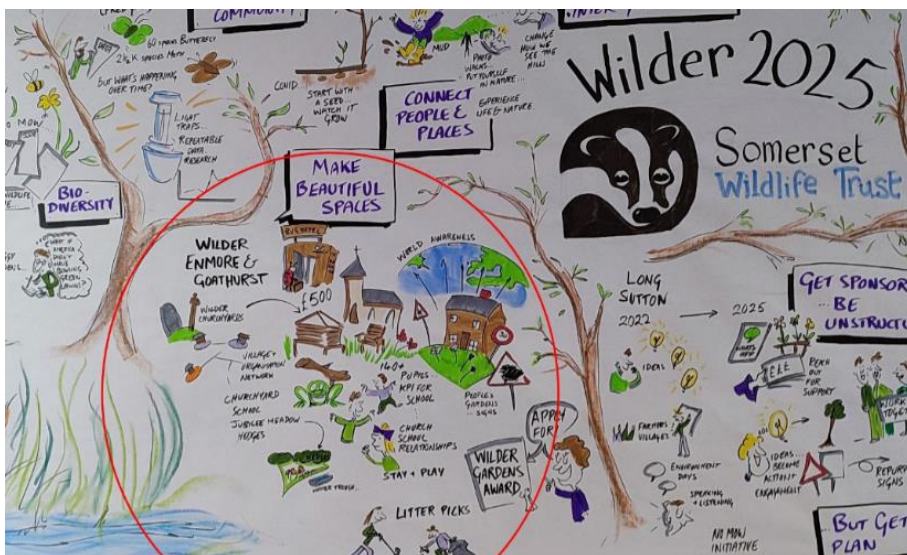 COMMUNITY
60 SPECIES BUTTERFLY
2½K SPECIES MOTH
BUT WHAT'S HAPPENING
OVER TIME?
LIGHT
TRAPS...
REPEATABLE
DATA
RESEARCH
COVID
START WITH
A SEED...
WATCH IT
GROW
MUD
PHOTO
WALKS...
PUT YOURSELF
IN NATURE...
CHANGE
HOW WE
SEE THE
HILLS
CONNECT
PEOPLE &
PLACES
EXPERIENCE
LIFE & NATURE
Wilder 2025
Somerset
Wildlife Trust
MOW
BIO-
DIVERSITY
MAKE
BEAUTIFUL
SPACES
WILDER
ENMORE &
GOATHURST
BUG HOTEL
£500
WORLD AWARENESS
WILDER
CHURCHYARDS
VILLAGE +
ORGANISATION
NETWORK
CHURCHYARD
SCHOOL
JUBILEE MEADOW
HEDGES
140+
PUPILS
KPI FOR
SCHOOL
CHURCH
SCHOOL
RELATIONSHIPS
STAY + PLAY
PEOPLE'S
GARDENS
SIGNS
LITTER PICKS
APPLY
FOR
WILDER
GARDENS
AWARD
LONG
SUTTON
2022
2025
IDEAS
FARMERS
VILLAGES
ENVIRONMENT
DAYS
SPEAKING
+ LISTENING
NO MOW
INITIATIVE
GET SPONSOR
... BE
UNSTRUCTU
WHATS
APP
REACH
OUT
FOR
SUPPORT
IDEAS...
BECOME
ACTION +
ENGAGEMENT
WORK
TOGET
REPUR
SIGNS
BUT GET
PLAN